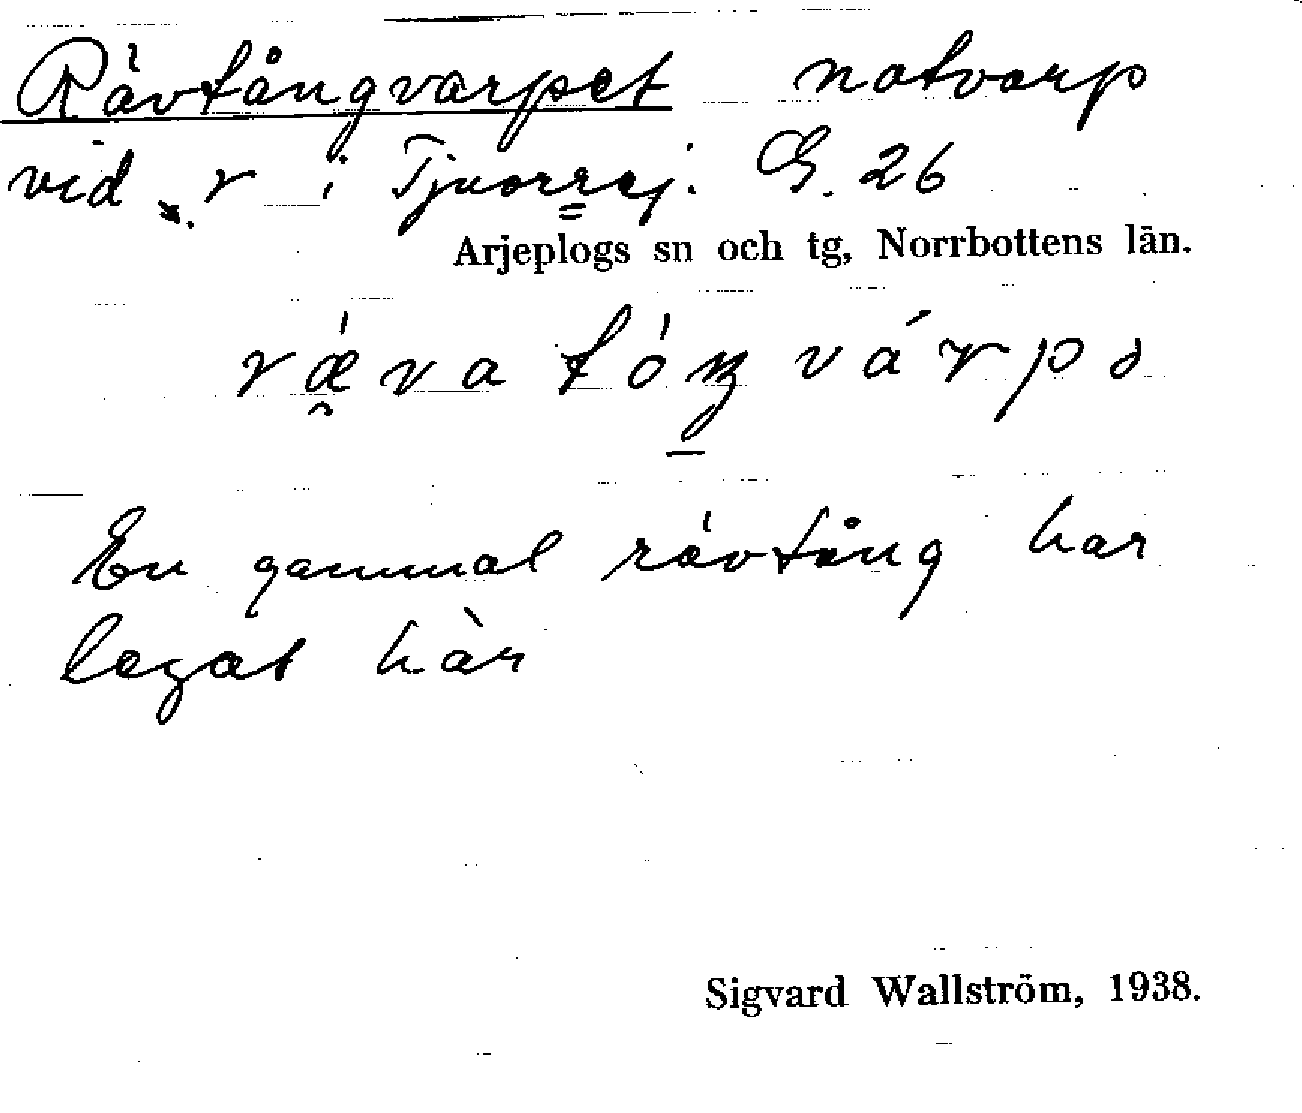 Rävtångvarpet notvarp
vid r i Tjuorrej. G. 26
Arjeplogs sn och tg, Norrbottens län.
En gammal rävtång har
legat här
Sigvard Wallström, 1938.